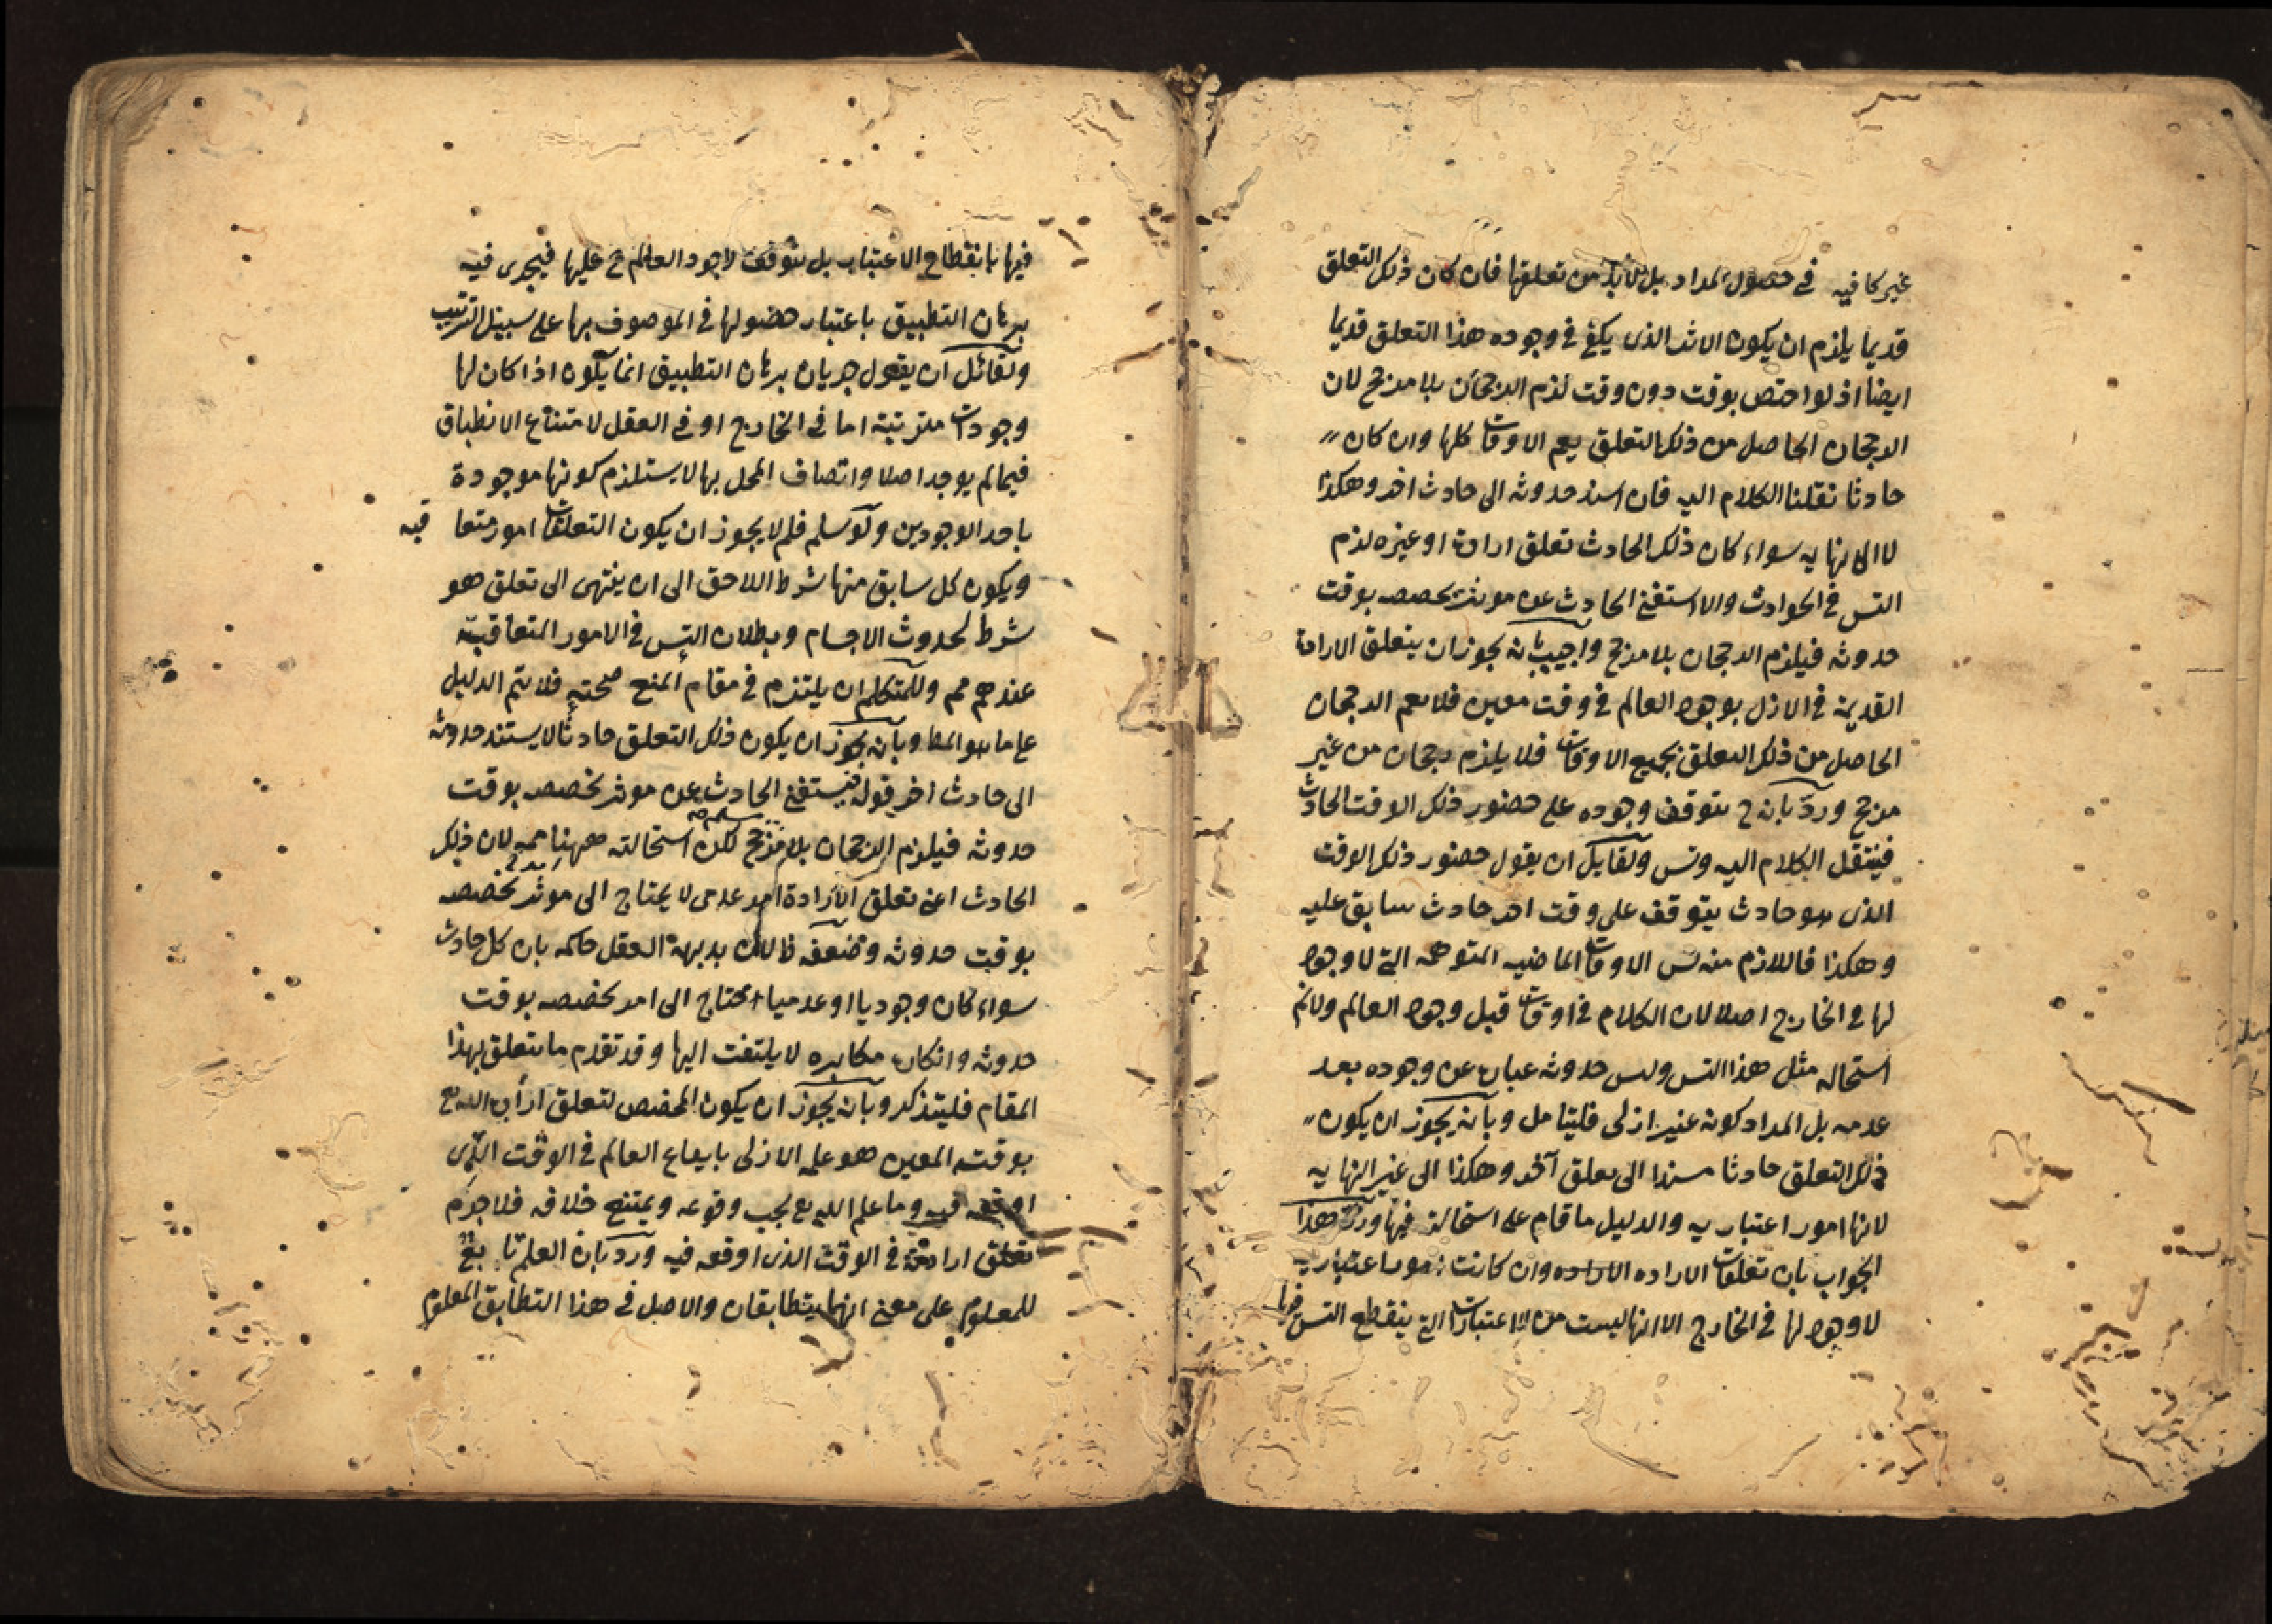 غير كافيه في حصول المراد بل لا بد من تعلقها فان كان ذلك التعلق
قديما يلزم ان يكون الاثر الذى يكفى في وجوده هذا التعلق قديما
ايضا اذ لو اختص بوقت دون وقت لزم الرجحان بلا مرجح لان
الرجحان الحاصل من ذلك التعلق يعم الاوقات كلها وان كان
حادثا نقلنا الكلام اليه فان اسند حدوثه الى حادث اخر وهكذا
لا الى نهايه سواء كان ذلك الحادث تعلق ارادة او غيره لزم
التس في الحوادث والا استغنى الحادث عن موثر يخصصه بوقت
حدوثه فيلزم الرجحان بلا مرجح واجيب بانه يجوز ان يتعلق الارادة
القديمة في الازل بوجود العالم في وقت معين فلا يعم الرجحان
الحاصل من ذلك التعلق بجميع الاوقات فلا يلزم رجحان من غير
مرجح ورد بان ح يتوقف وجوده على حضور ذلك الوقت الحادث
فينتقل الكلام اليه وتس ولقايل ان يقول حضور ذلك الوقت
الذى هو حادث يتوقف على وقت اخر حادث سابق عليه
وهكذا فاللازم منه تس الاوقات الماضيه المتوهمه التى لا وجود
لها في الخارج اصلا لان الكلام في اوقات قبل وجود العالم ولا نم
استحاله مثل هذا التس وليس حدوثه عبارة عن وجوده بعد
عدمه بل المراد كونه غير ازلى فليتامل وبانه يجوز ان يكون
ذلك التعلق حادثا مسندا الى تعلق آخر وهكذا الى غير النهايه
لانها امور اعتباريه والدليل ما قام على استحالة فيها ورد هذا
الجواب بان تعلقات الاراده الاراده وان كانت امورا اعتباريه
لا وجود لها في الخارج الا انها ليست من الاعتبارات التى ينقطع التس فيها
فيها بانقطاع الاعتبار بل يتوقف وجود العالم ح عليها فيجرى فيه
برهان التطبيق باعتبار حضولها في الموصوف بها على سبيل الترتيب
ولقائل ان يقول جريان برهان التطبيق انما يكون اذا كان لها
وجودات مترتبة اما في الخارج او في العقل لامتناع الانطباق
فيما لم يوجد اصلا واتصاف المحل بها لا يستلزم كونها موجودة
باحد الوجودين ولو سلم فلم لا يجوز ان يكون التعلقات امور متعا قبه
ويكون كل سابق منها شرط اللاحق الى ان ينتهى الى تعلق هو
شرط لحدوث الاجسام وبطلان التس في الامور المتعاقبة
عندهم مم وللمتكلم ان يلتزم في مقام المنع صحته فلا يتم الدليل
على ما هو المط وبانه يجوز ان يكون ذلك التعلق حادثا لا يستند حدوثه
الى حادث اخر قوله فيستغنى الحادث عن موثر يخصصه بوقت
حدوثه فيلزم الرجحان بلا مرجح لكن استحالته ههنا مم لان ذلك
الحادث اعنى تعلق الارادة امر عدمى لا يحتاج الى موثر يخصصه
بوقت حدوثه وضعفه ظ لان بديهة العقل حاكمه بان كل حادث
سواء كان وجوديا او عدميا احتاج الى امر يخصصه بوقت
حدوثه وانكاره مكابره لا يلتفت اليها وقد تقدم ما يتعلق بهذا
المقام فليتذكر وبانه يجوز ان يكون المخصص لتعلق ارادة الله تع
بوقته المعين هو علمه الازلى بايقاع العالم في الوقت الذى
اوقعه فيه وما علم الله تع يجب وقوعه ويمتنع خلافه فلا جرم
تعلق ارادته في الوقت الذى اوقعه فيه ورد بان العلم تابع
للمعلوم على معنى انهما يتطابقان والاصل في هذا التطابق المعلوم